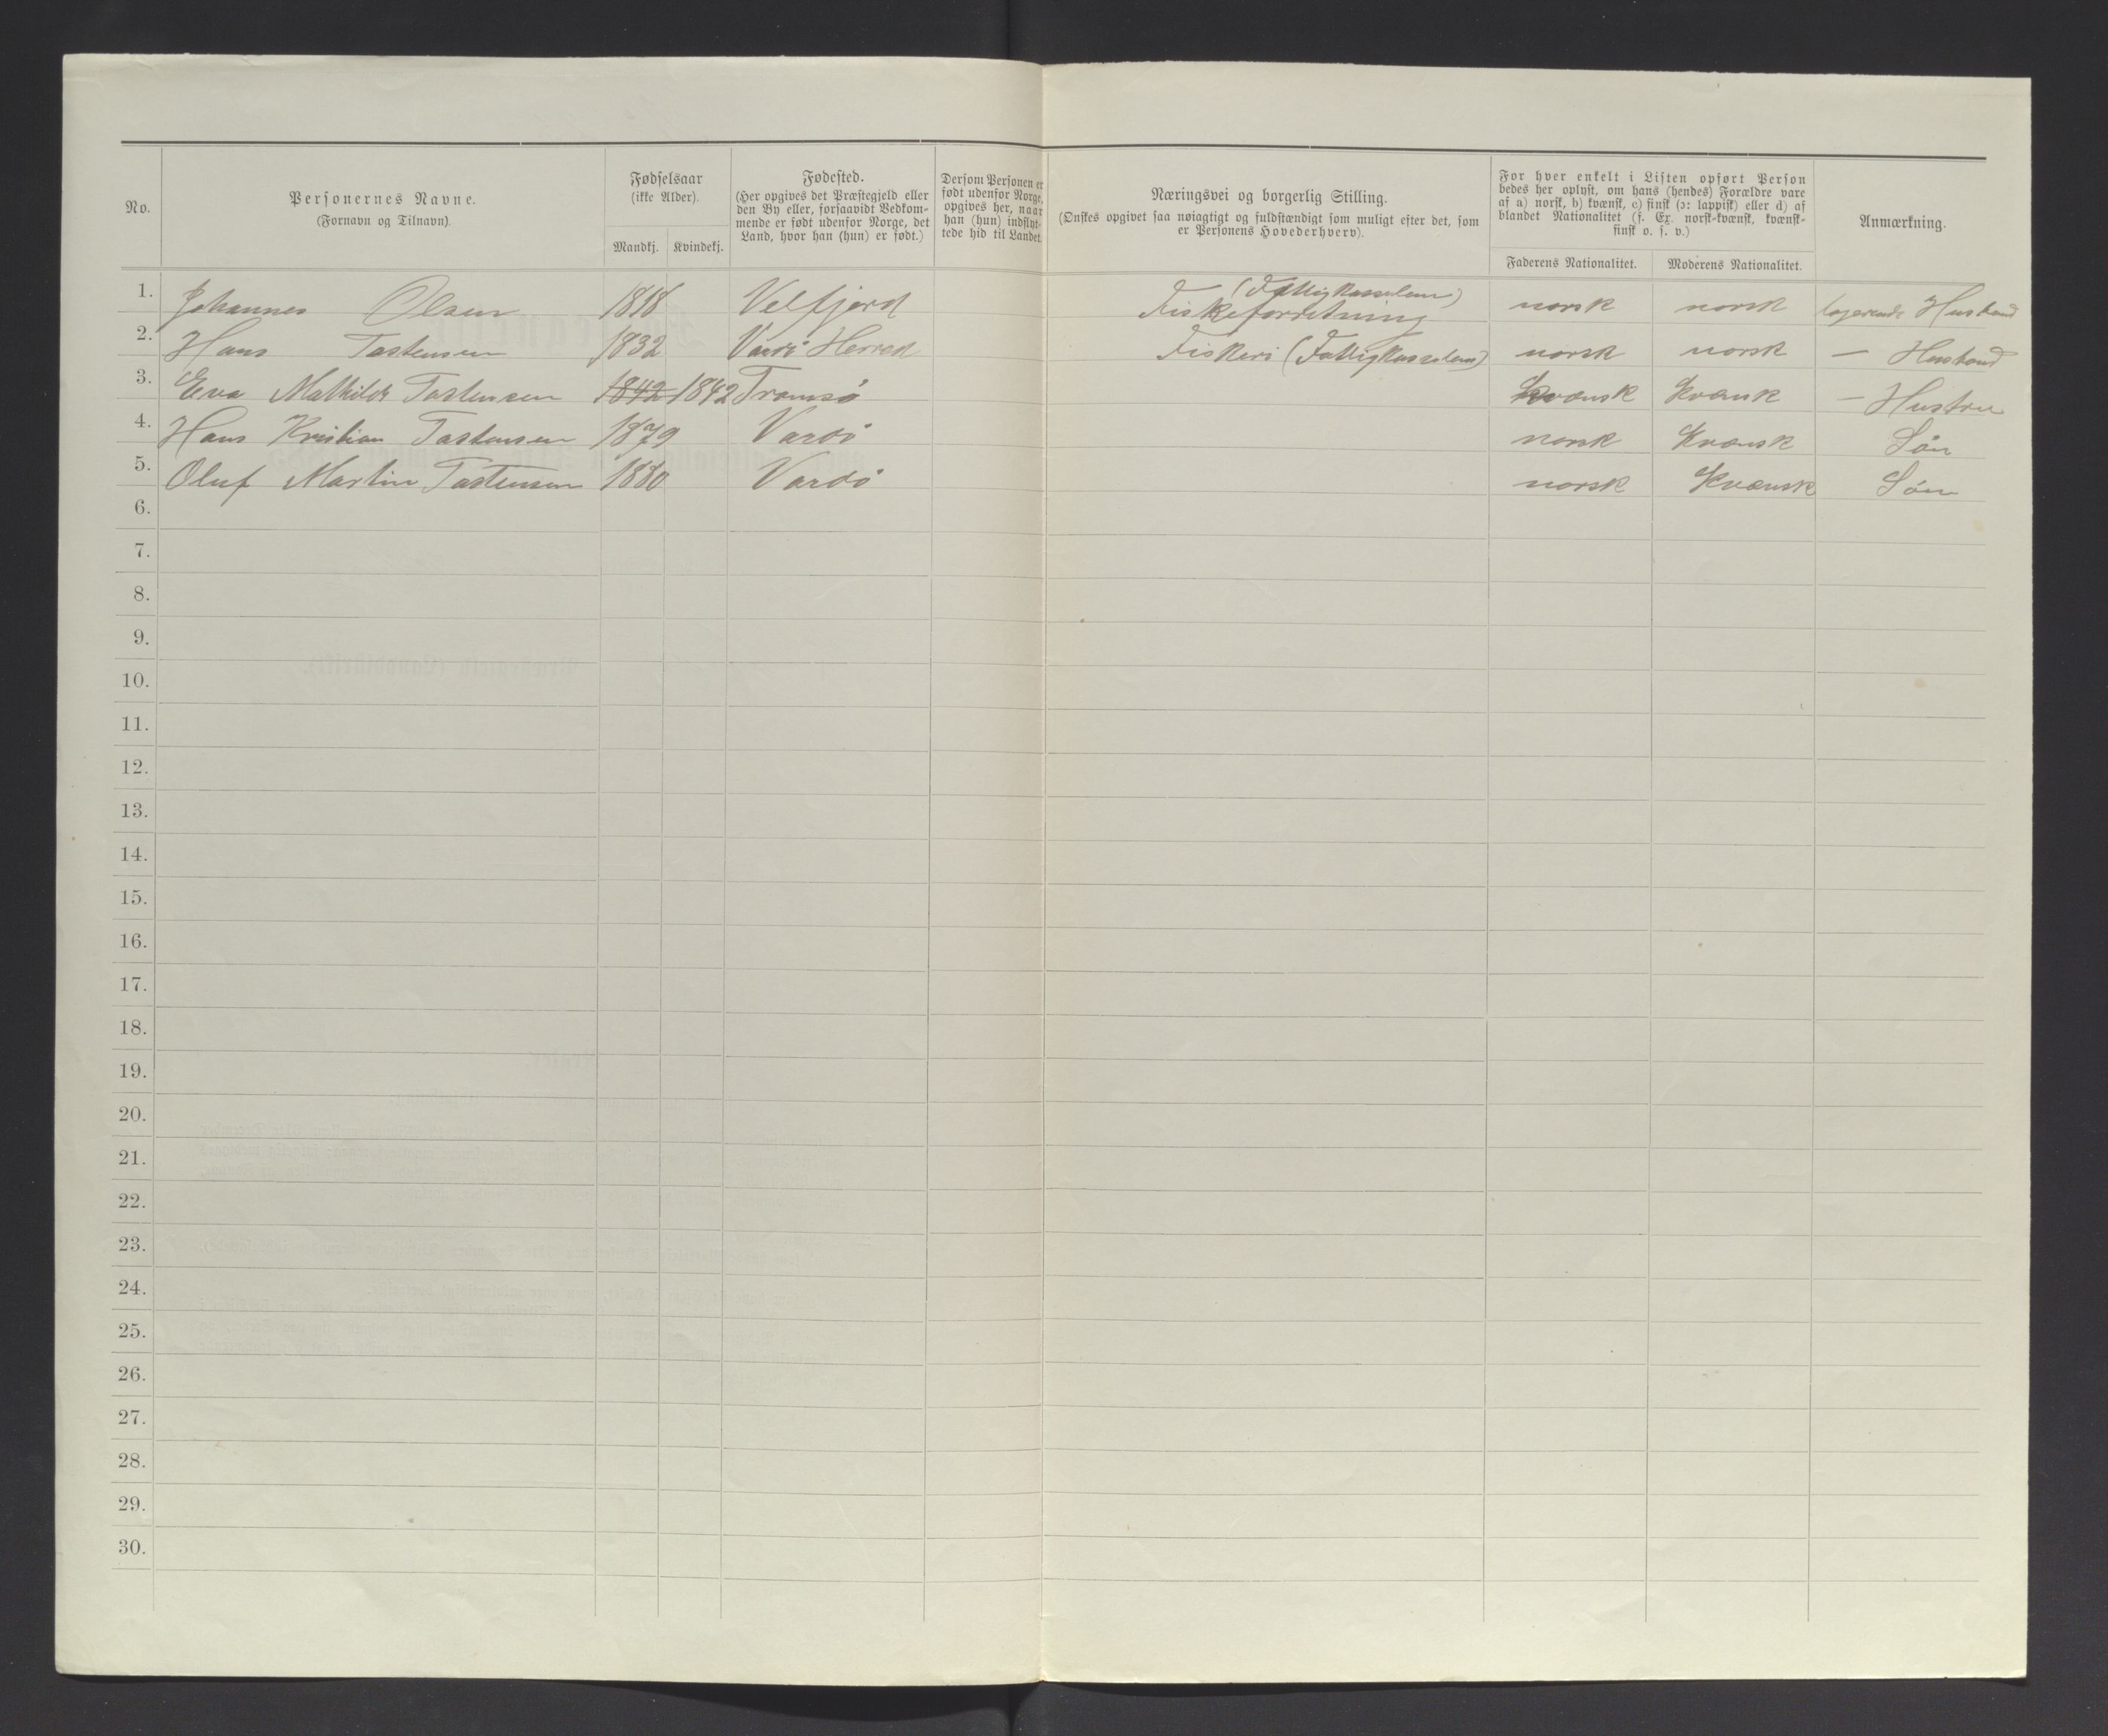 No.
Personernes Navne.
(Fornavn og Tilnavn).
Fødselsaar
(ikke Alder).
Mandkj. Kvindekj.
Fødested.
(Her opgives det Præstegjeld eller
den By eller, forsaavidt Vedkom-
mende er født udenfor Norge, det
Land, hvor han (hun) er født.)
Dersom Personen er
født udenfor Norge,
opgives her, naar
han (hun) indflyt-
tede hid til Landet.
Næringsvei og borgerlig Stilling.
(Ønskes opgivet saa nøiagtigt og fuldstændigt som muligt efter det, som
er Personens Hovederhverv).
For hver enkelt i Listen opført Person
bedes her oplyst, om hans (hendes) Forældre vare
af a) norsk, b) kvænsk, c) finsk (ɔ: lappisk) eller d) af
blandet Nationalitet (f. Ex. norsk-kvænsk, kvænsk-
finsk o. s. v.)
Faderens Nationalitet. Moderens Nationalitet.
Anmærkning.
1. Johannes Olsen 1818 Velfjord (Fattigkasselem) Fiskeforretning norsk norsk Husbond
2. Hans Tostensen 1832 Vardö Herred Fiskeri (Fattigkasselem) norsk norsk — Husbond
3. Eva Mathilde Tostensen 1842 1842 Tromsö Kvænsk Kvænsk — Hustru
4. Hans Kristian Tostensen 1879 Vardö norsk Kvænsk Sön
5. Oluf Martin Tostensen 1880 Vardö norsk Kvænsk Sön
6.
7.
8.
9.
10.
11.
12.
13.
14.
15.
16.
17.
18.
19.
20.
21.
22.
23.
24.
25.
26.
27.
28.
29.
30.